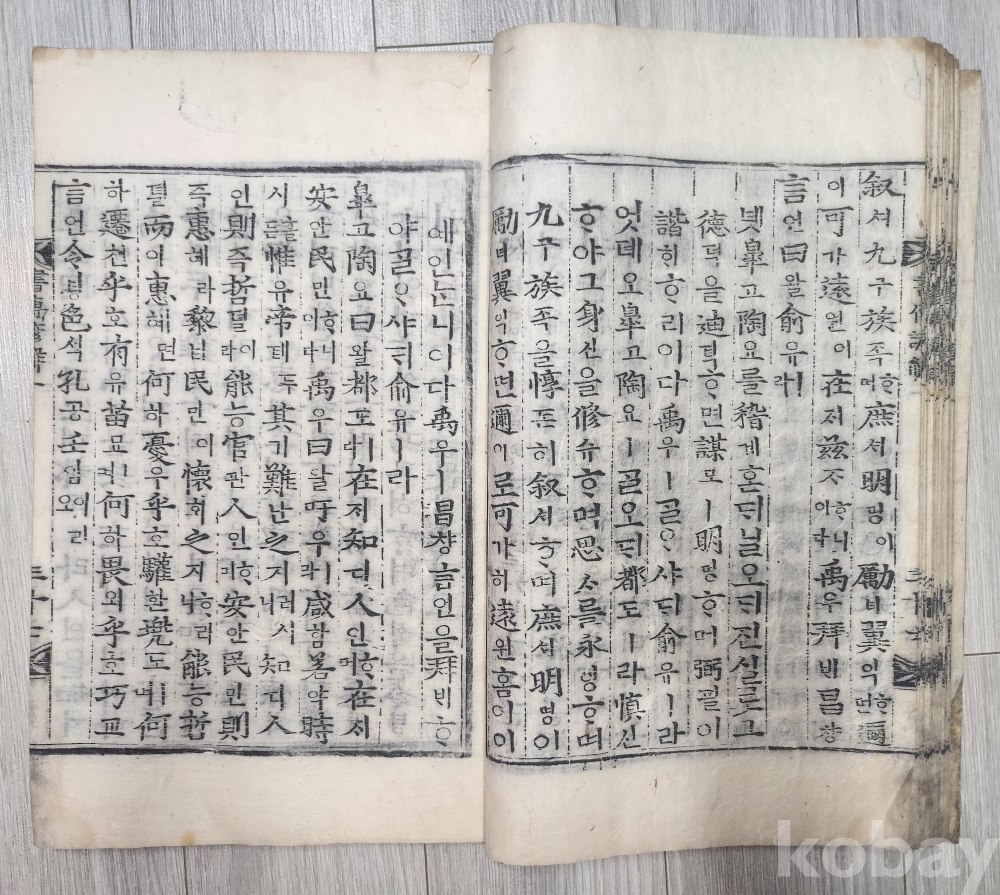 叙셔九구族족ᄒᆞ며庶셔明명이勵녀翼익ᄒᆞ면邇
이可가遠원이在ᄌᆡ玆ᄌᆞᄒᆞ니이다禹우拜ᄇᆡ昌창
言언曰왈俞유ㅣ라
녯皐고陶요를稽계혼ᄃᆡ닐오ᄃᆡ진실로그
德덕을迪뎍ᄒᆞ면謀모ㅣ明명ᄒᆞ며弼필이
諧ᄒᆡᄒᆞ리이다禹우ㅣ골ᄋᆞ샤ᄃᆡ俞유ㅣ라
엇뎨오皐고陶요ㅣ골오ᄃᆡ都도ㅣ라愼신
ᄒᆞ야그身신을修슈ᄒᆞ며思ᄉᆞ를永영ᄒᆞ며
九구族족을惇돈히叙셔ᄒᆞ며庶셔明명이
勵녀翼익ᄒᆞ면邇이로可가히遠원홈이이
에인ᄂᆞ니이다禹우ㅣ昌창言언을拜ᄇᆡᄒᆞ
야골ᄋᆞ샤ᄃᆡ俞유ㅣ라
皐고陶요曰왈都도ㅣ라在ᄌᆡ知디人인ᄒᆞ며在ᄌᆡ
安안民민ᄒᆞ니이다禹우曰왈吁우ㅣ라咸함若약時
시惟유帝뎨도其기難난之지러시니知디人
인則즉哲텰이라能능官관人인ᄒᆞ며安안民민則
즉惠혜라黎녀民민이懷회之지ᄒᆞ리니能능哲
텰而이惠혜면何하憂우乎호驩환兜도ㅣ며何
하遷쳔乎호有유苗묘ㅣ며何하畏외乎호巧교
言언令령色ᄉᆡᆨ孔공壬임이리오
書傳諺解一
kobay